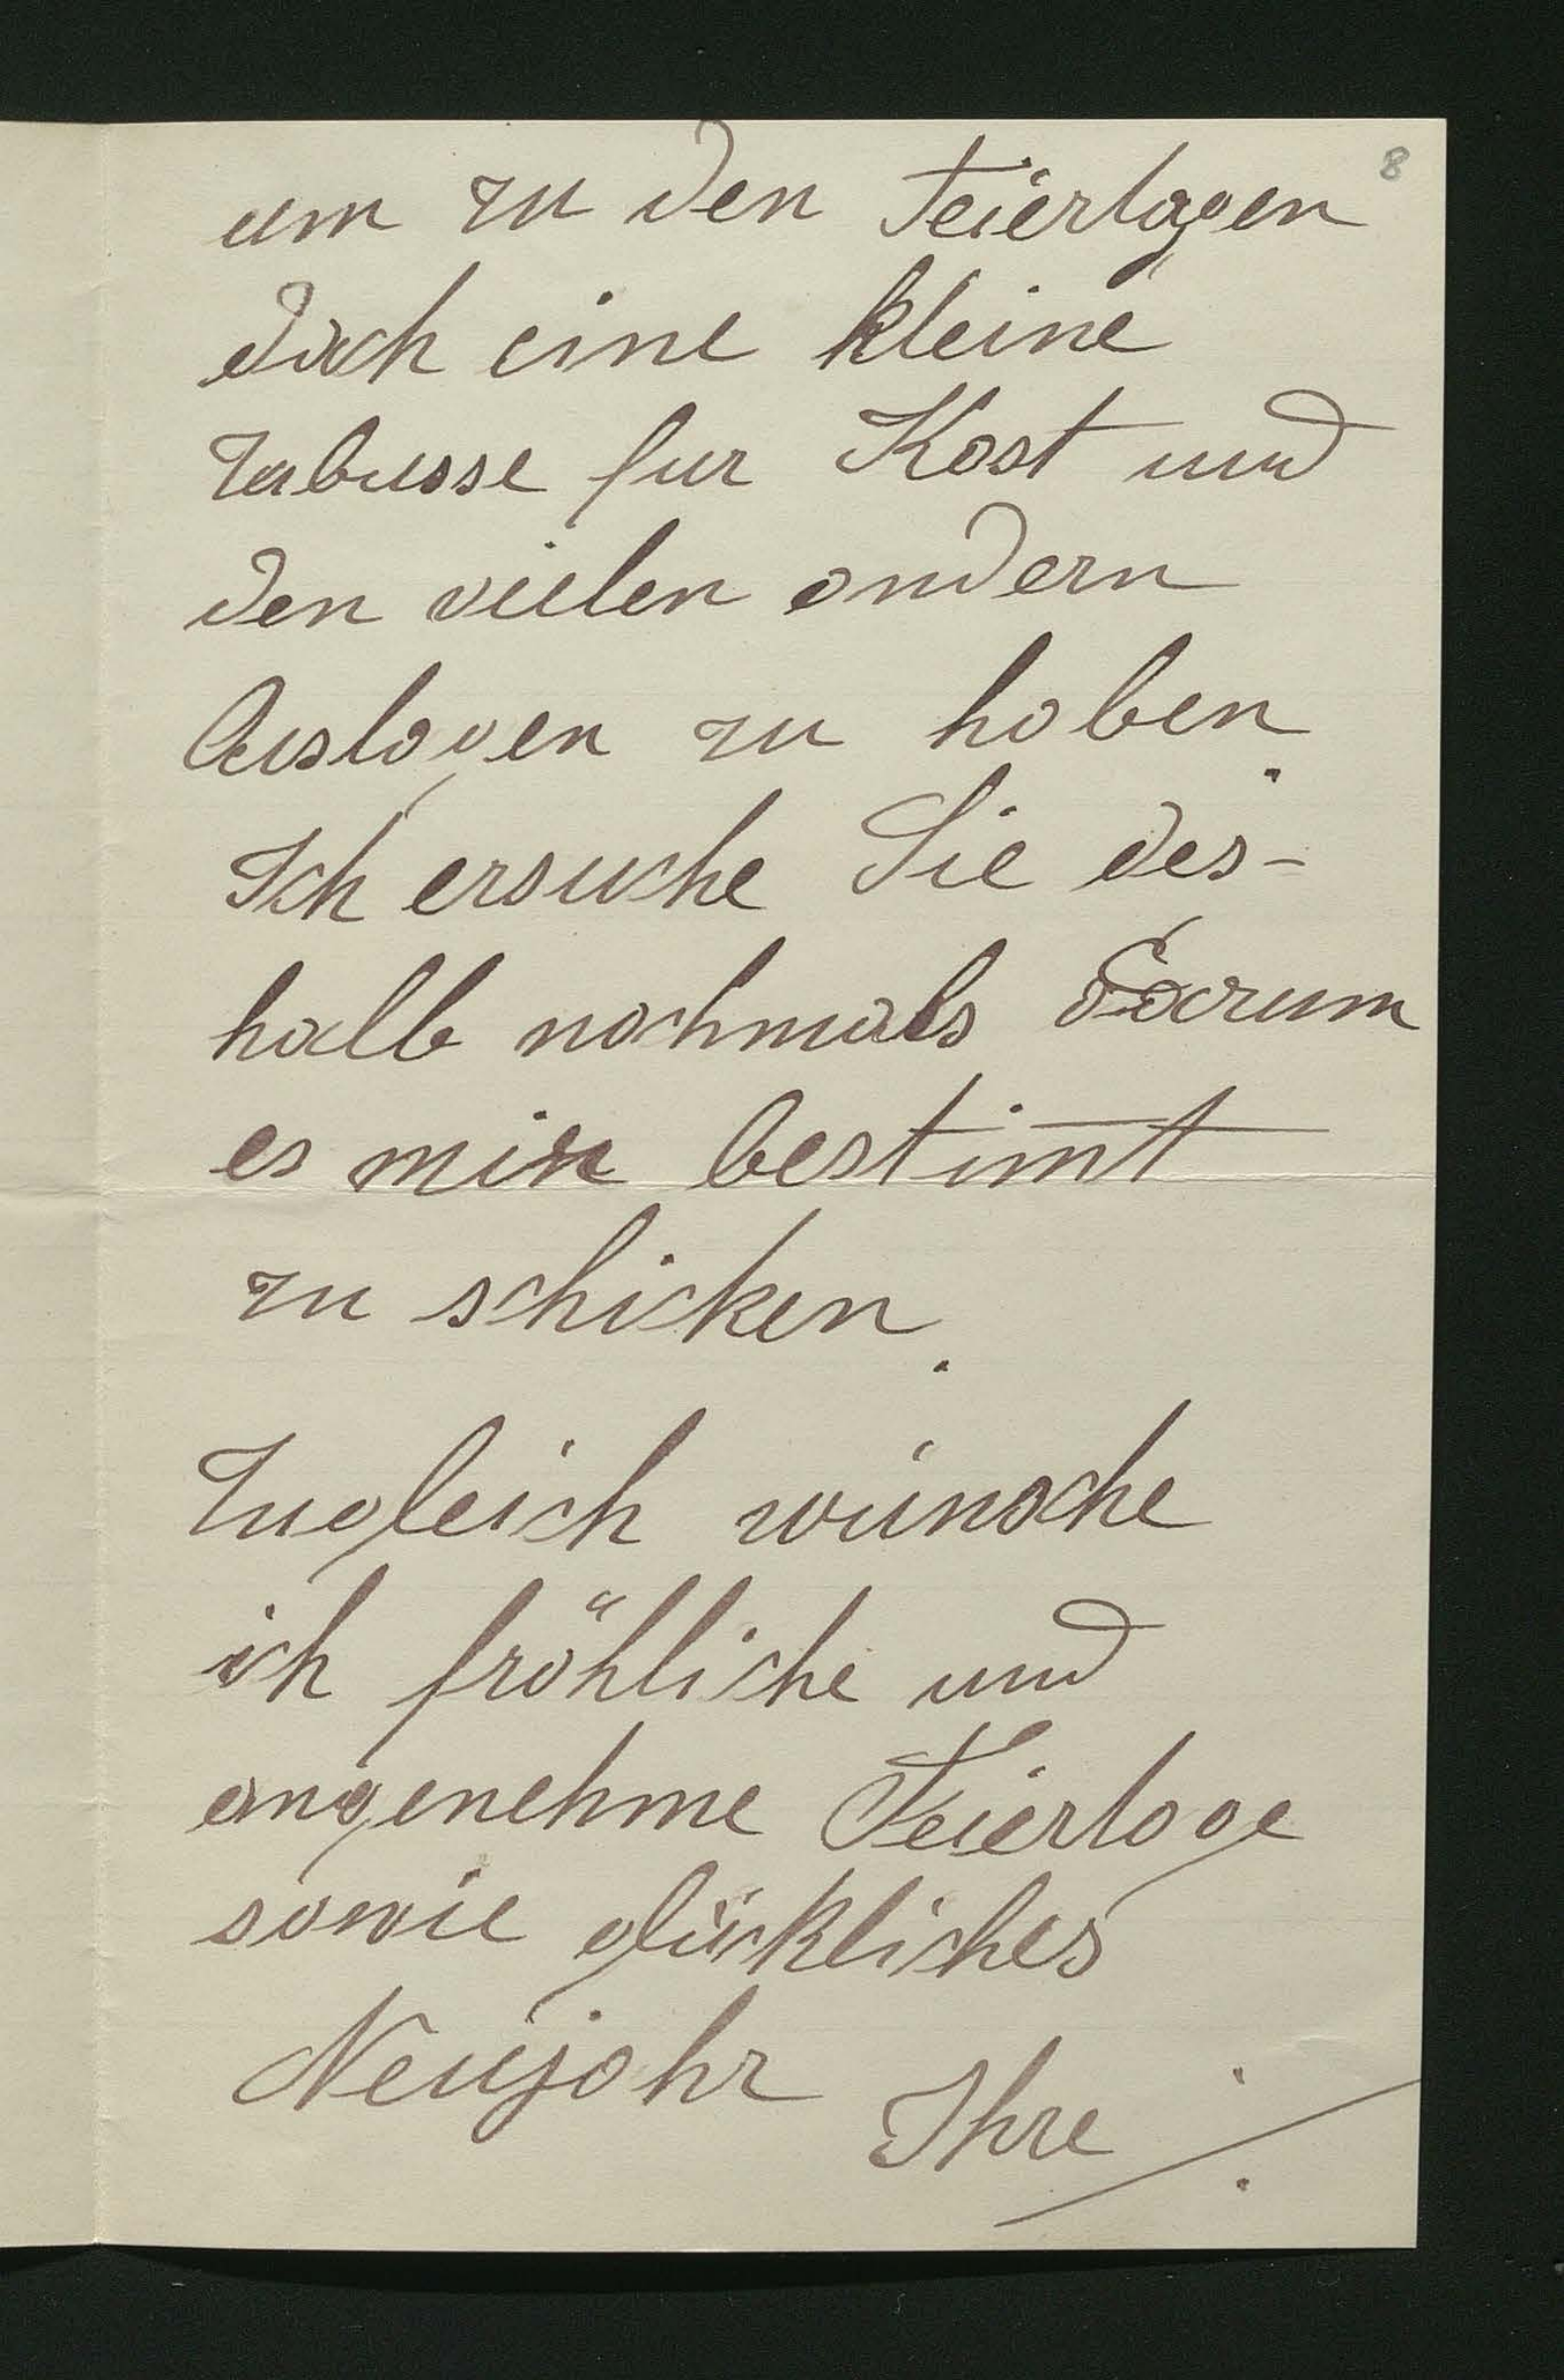 8
um zu den Feiertagen
doch eine kleine
Zubusse fur Kost und
den vielen andern
Auslagen zu haben.
Ich ersuche Sie des-
halb nochmals darum
es mir bestim̅t
zu schicken.
Zugleich wünsche
ich fröhliche und
angenehme Feiertage
sowie glückliches
Neujahr Ihre ./.